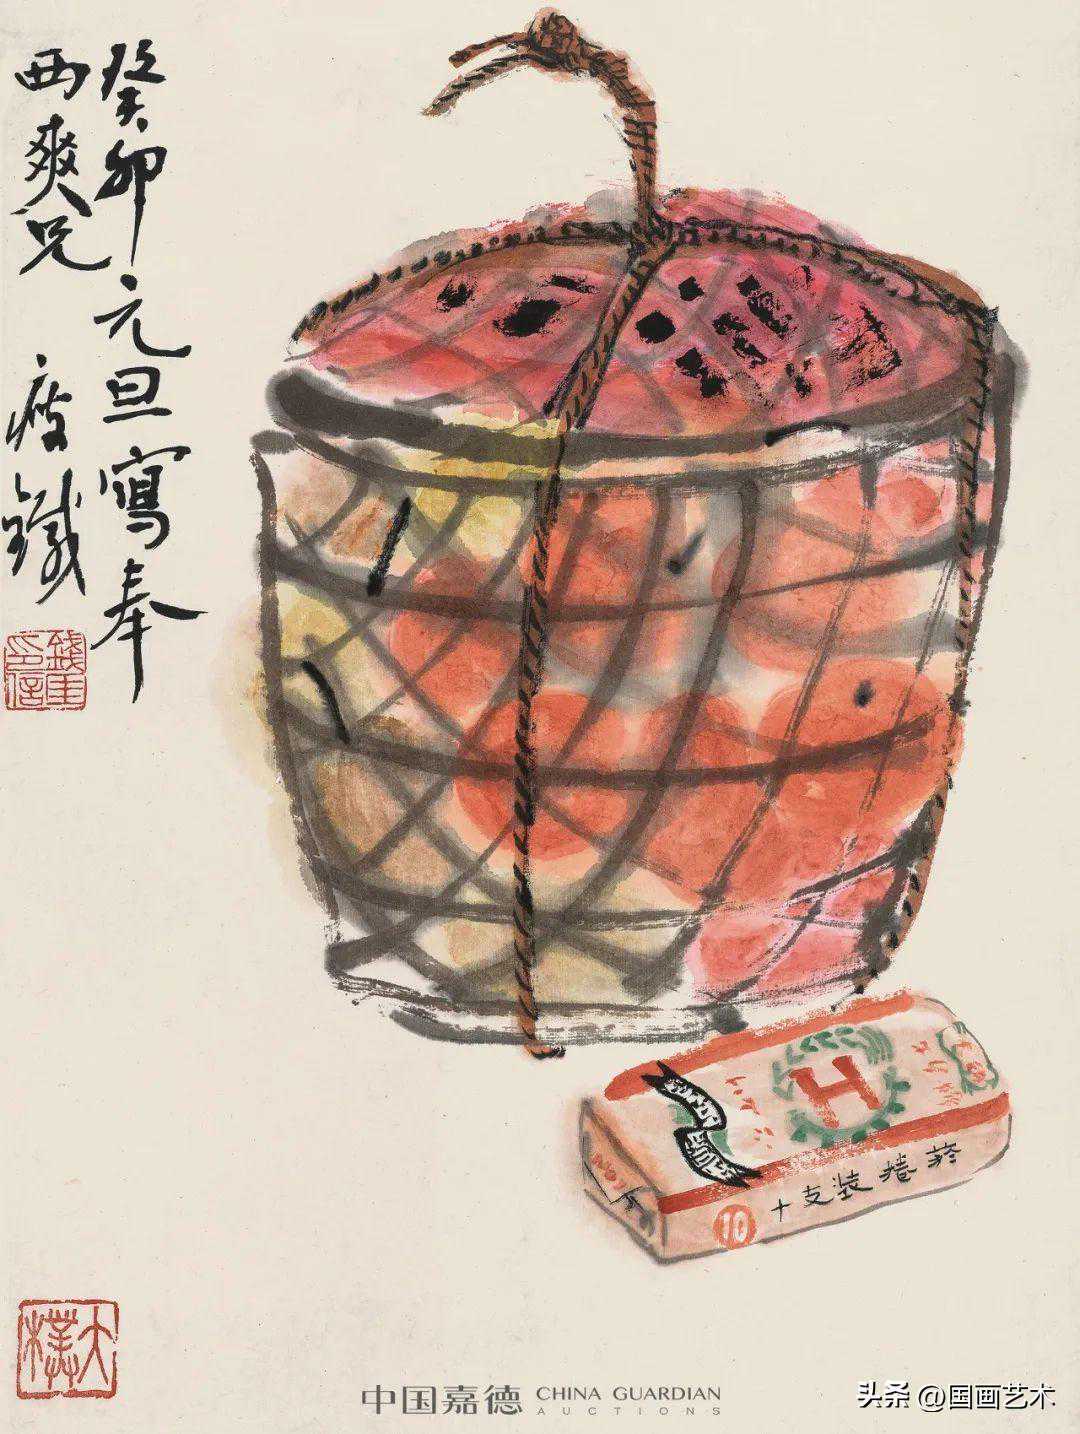 癸卯元旦寫奉
西爽兄
瘦鐵
錢厓印信
大樸
H
10
十支装捲菸
中国嘉德 CHINA GUARDIAN
AUCTIONS
头条 @国画艺术